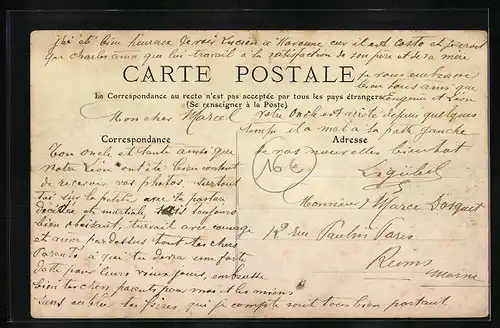 j'ai été bien heureux de voir Lucien à Varenne car il est costo et
que Charles ainsi que lui travail à la satisfaction de son père et de sa mère
CARTE POSTALE
je vous embrasse
La Correspondance au recto n'est pas acceptée par tous les pays étrangers
bien tous ainsi que
(Se renseigner à la Poste)
Eugénie et Léon
Mon cher Marcel
votre Oncle est arrêté depuis quelques
temps il a mal à la patte gauche
Correspondance
Adresse
de vos nouvelles bientôt
Ton oncle et tante ainsi que
Notre Léon ont été bien content
de recevoir vos photos. Surtout
toi sur la petite
166
Monsieur Marcel
toujours
bien obéissant, travail avec courage
et aime par dessus tout tes chers
12 rue Paulin Paris
Parents à qui tu devra une forte
Reims
dette pour leurs vieux jours, embrasse
Marne
bien tes chers parents pour moi et les miens
Sans oublier tes frères qui je compte sont tous bien portant